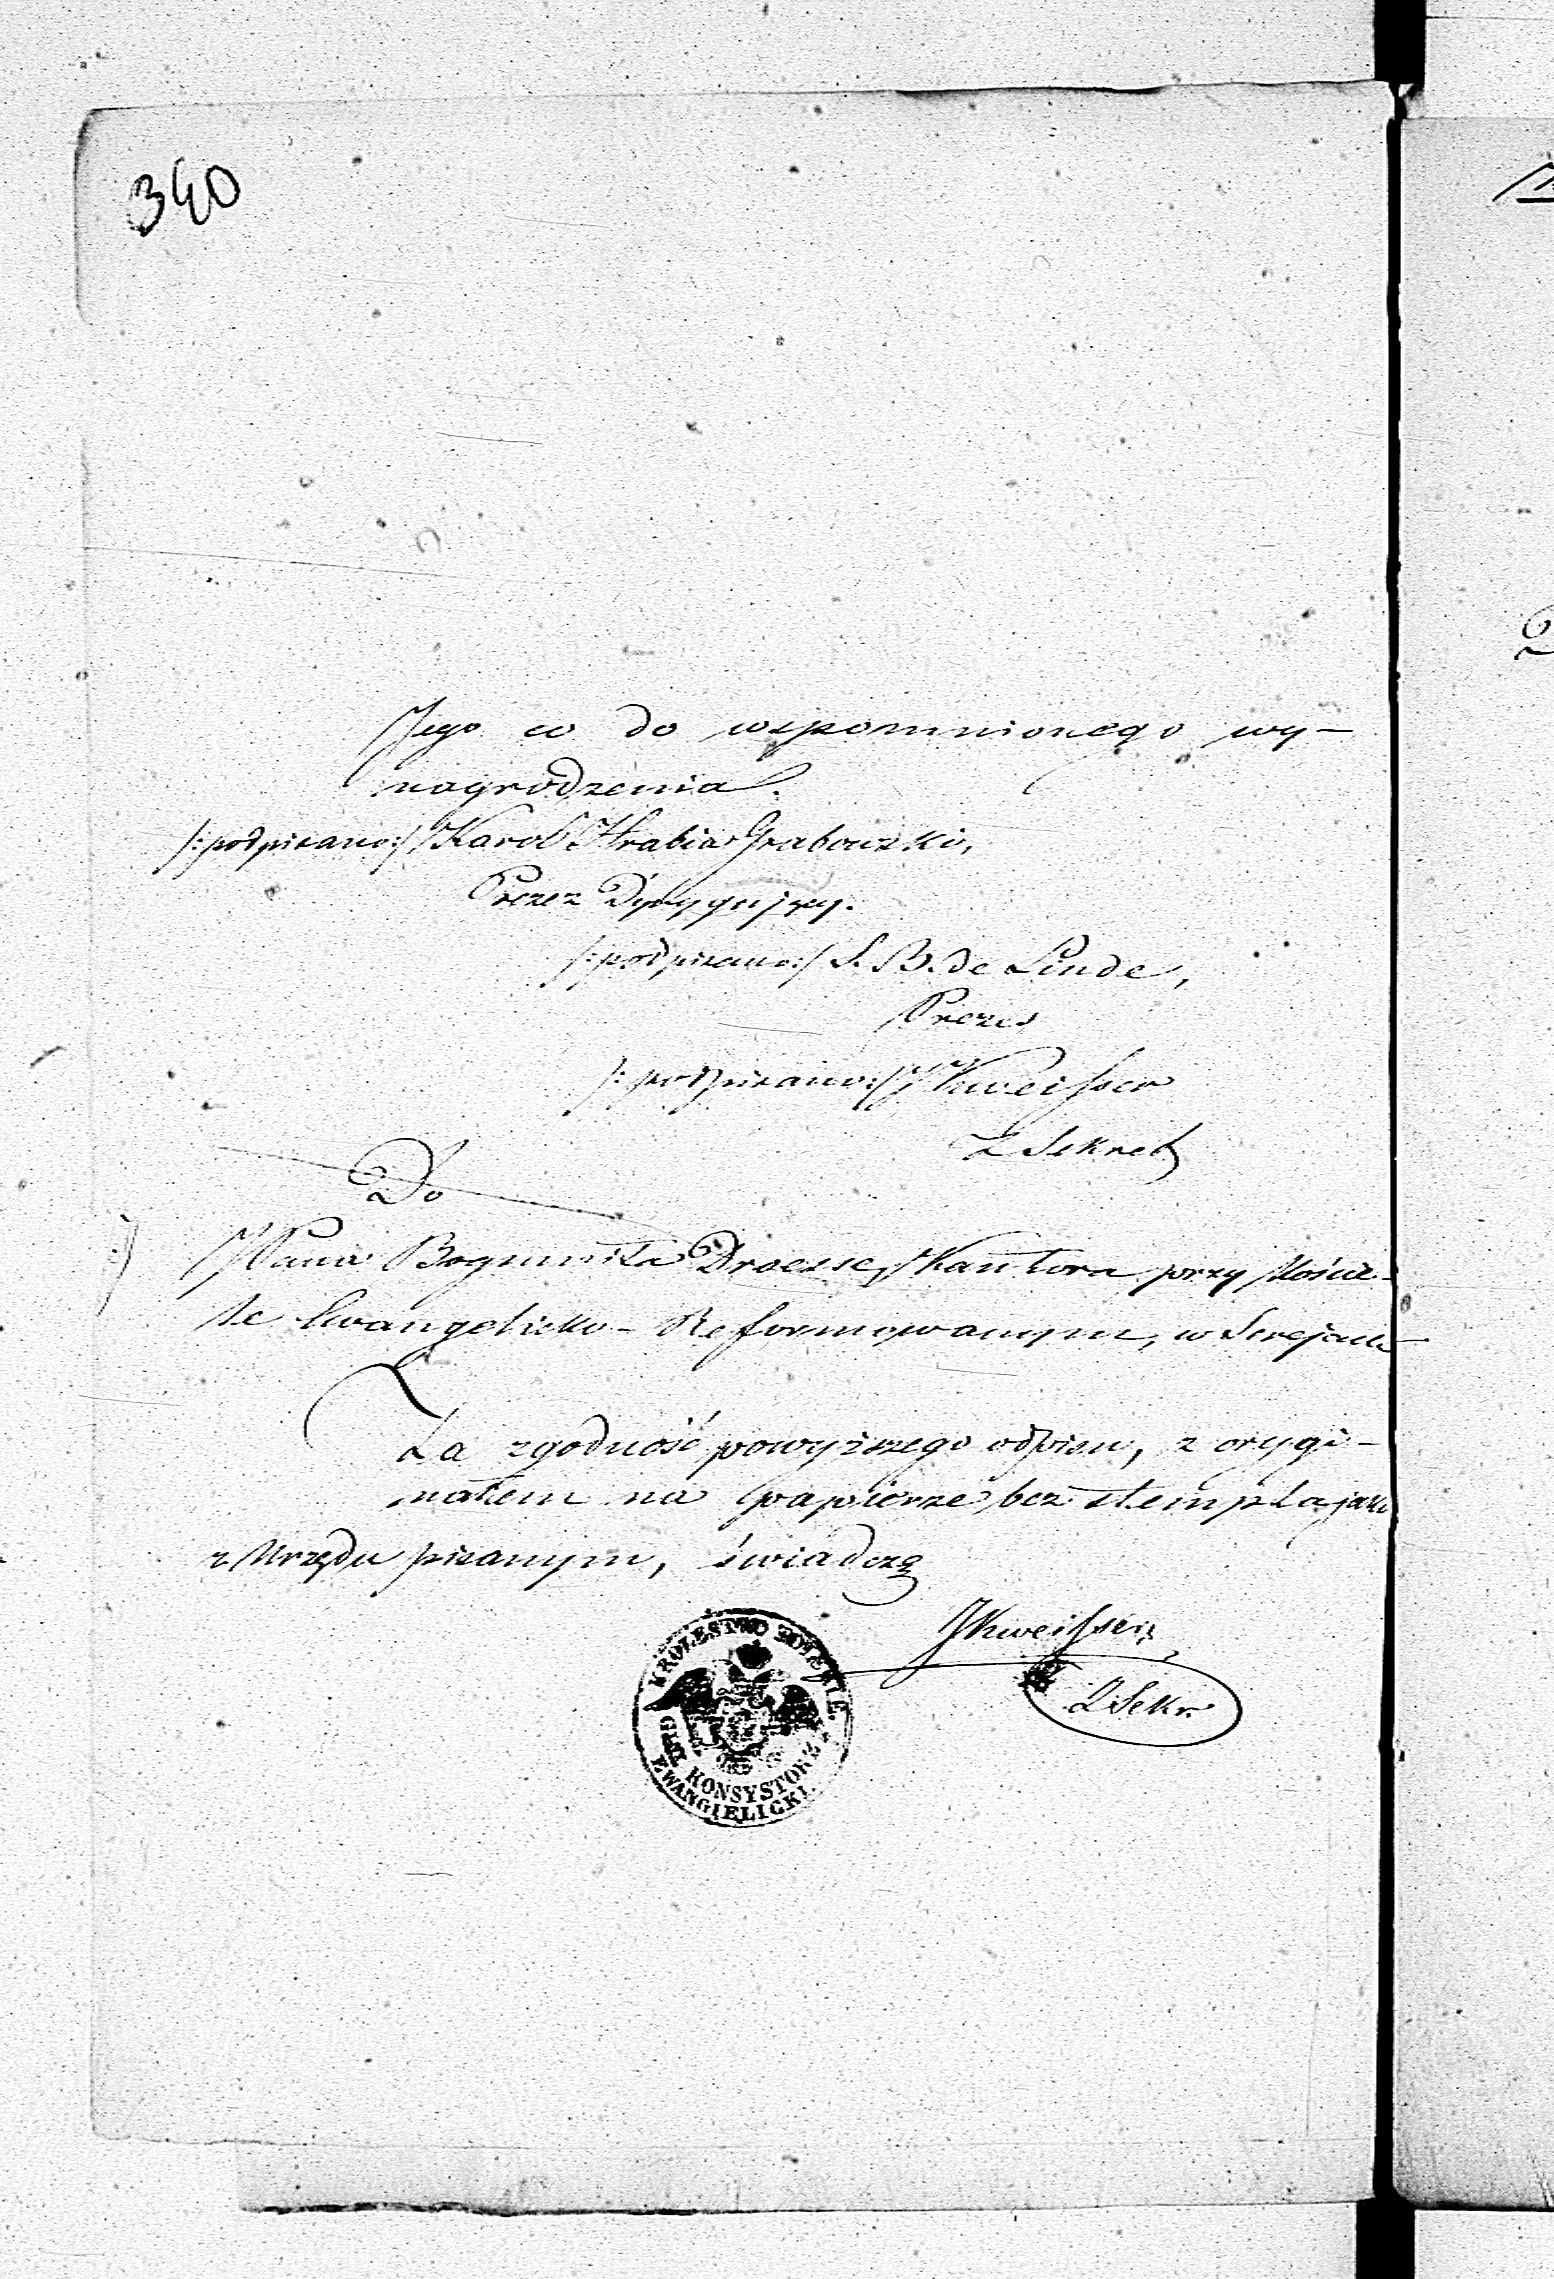 340
Jego co do wspomnionego wy-
nagrodzenia.
/:podpisano:/ Karol Hrabia Grabowski,
Prezes Dyrygujący.
/:podpisano:/ S. B. de Linde,
Prezes
/:podpisano:/ J Kweisser
Z Sekret
Do
Pana Bogumiła Droesse, Kantora przy Kościе-
le Ewangelicko-Reformowanym, w Serejach
Za zgodność powyższego odpisu, z orygi-
nałem na papierze bez stempla jako
z Urzędu pisanym, świadczę
JKweisser
Z Sekr.
KRÓLESTWO POLSKIE.
KONSYSTORZ
EWANGIELICKI.